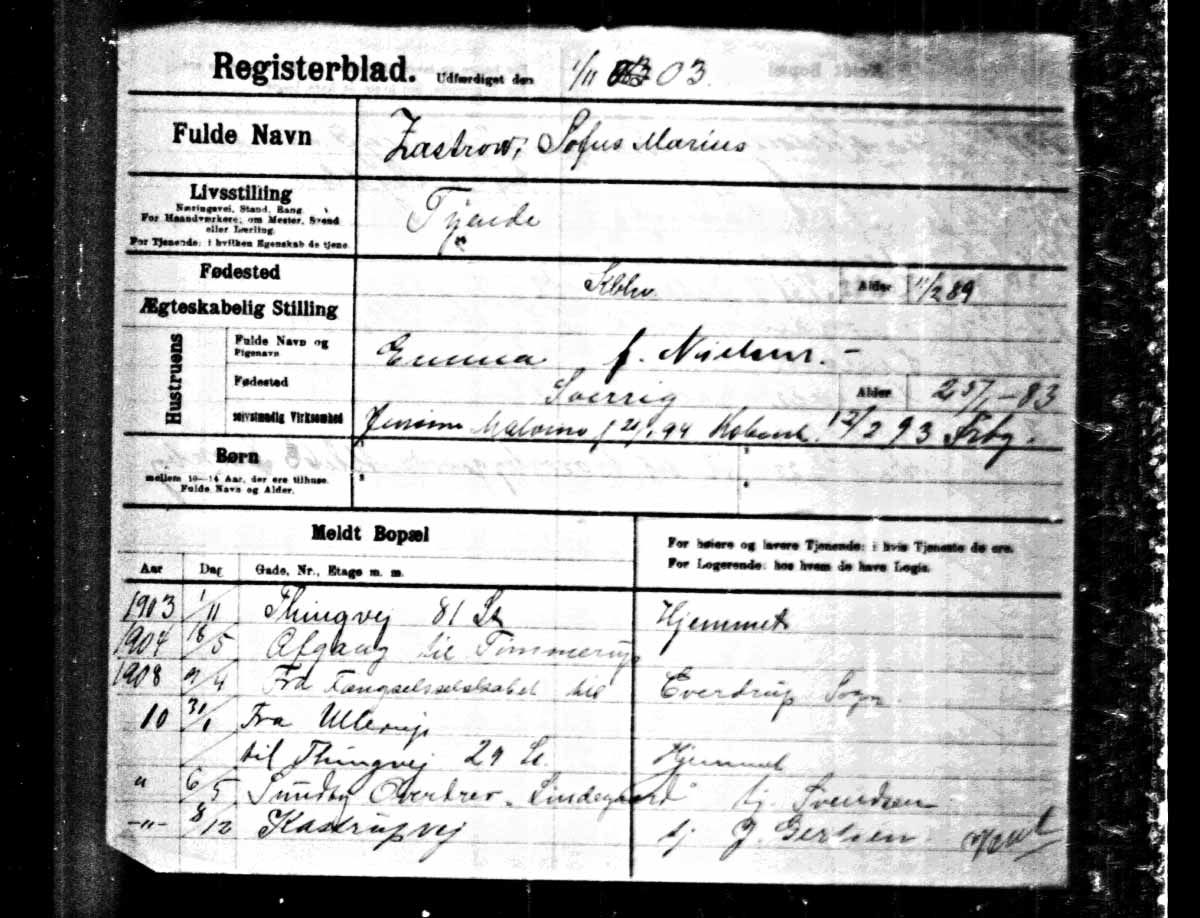 Registerblad. Udfærdiget den 1/11 03.
Fulde Navn Zastrow, Sofus Marius
Livsstilling
Næringsvei, Stand, Rang.
For Haandværkere; om Mester, Svend
eller Lærling.
For Tjenende: i hvilken Egenskab de tjene
Tjende
Fødested Kbhv. Alder 11/2 89
Ægteskabelig Stilling
Hustruens
Fulde Navn og
Pigenavn
Emma f. Nielsen. -
Fødested Sverrig Alder 25/1-83
selvstændig Virksomhed 94 12/2 93 Frbg.
Børn
mellem 10-14 Aar, der ere tilhuse.
Fulde Navn og Alder.
Meldt Bopæl
For høiere og lavere Tjenende: i hvis Tjeneste de ere.
For Logerende: hos hvem de have Logis.
Aar Dag Gade, Nr., Etage m. m.
1903 1/11 Thingvej 81 St Hjemmet
1904 18/5 Afgang til Tommerup
1908 /4 Fra Fængselsselskabet til Everdrup Sogn
10 31/1 Fra Ullerup
til Thingvej 29 St. Hjemmet
" 6/5 Sundby Overdrev "Lindegaard" tj. Svendsen
-"- 8/12 Kastrupvej tj J. Gertsen